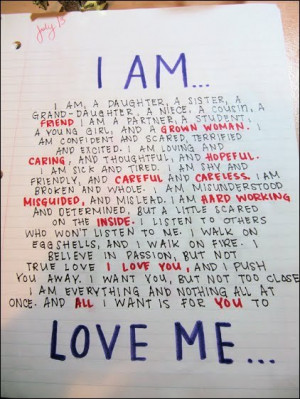 July 13
I AM...
I AM, A DAUGHTER, A SISTER, A
GRAND-DAUGHTER, A NIECE, A COUSIN, A
FRIEND I AM A PARTNER, A STUDENT,
A YOUNG GIRL, AND A GROWN WOMAN. I
AM CONFIDENT AND SCARED, TERRIFIED
AND EXCITED. I AM LOVING AND
CARING, AND THOUGHTFUL, AND HOPEFUL.
I AM SICK AND TIRED. I AM SHY AND
FRIENDLY, AND CAREFUL AND CARELESS. I AM
BROKEN AND WHOLE. I AM MISUNDERSTOOD
MISGUIDED, AND MISLEAD. I AM HARD WORKING
AND DETERMINED, BUT A LITTLE SCARED
ON THE INSIDE. I LISTEN TO OTHERS
WHO WON'T LISTEN TO ME. I WALK ON
EGGSHELLS, AND I WALK ON FIRE. I
BELIEVE IN PASSION, BUT NOT
TRUE LOVE I LOVE YOU, AND I PUSH
YOU AWAY. I WANT YOU, BUT NOT TOO CLOSE
I AM EVERYTHING AND NOTHING ALL AT
ONCE. AND ALL I WANT IS FOR YOU TO
LOVE ME...